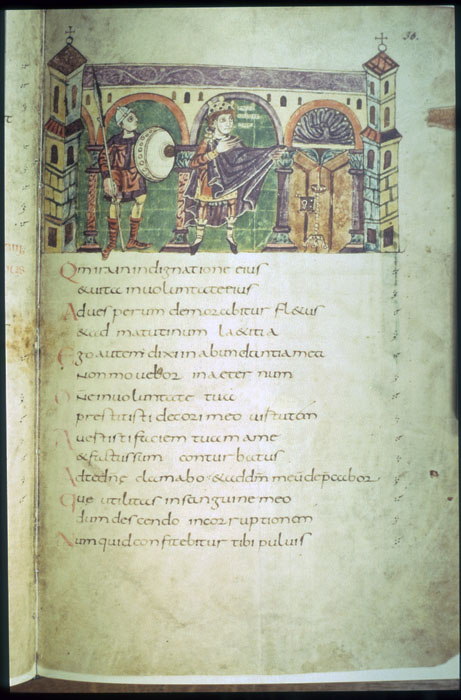 36.
Qm ira in indignatione eius
& uita in uoluntate eius
Ad uesperum demorabitur fl&us
& ad matutinum la&itia
Ego autem dixi in abundantia mea
Non mouebor in aeternum
Dn̄e in uoluntate tua
prestitisti decori meo uirtutem
Auertisti faciem tuam a me
& factus sum conturbatus
Ad te dn̄e clamabo & ad dm̄ meū deprecabor
Que utilitas in sanguine meo
dum descendo in corruptionem
Numquid confitebitur tibi puluis